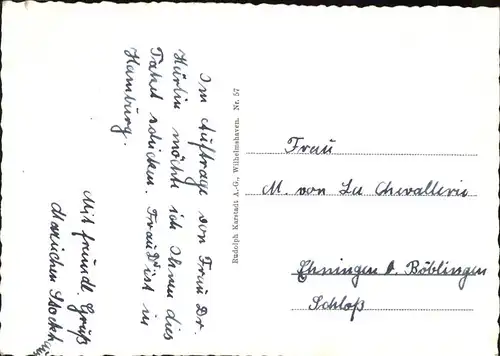 Im Auftrage von Frau Dr.
Härlin möchte ich Ihnen dies
Paket schicken. Frau Dr ist in
Hamburg.
Mit freundl. Gruß
Mariechen
Rudolph Karstadt A.-G., Wilhelmshaven. Nr. 57
Frau
M. von La Chevallerie
Ehningen b. Böblingen
Schloß